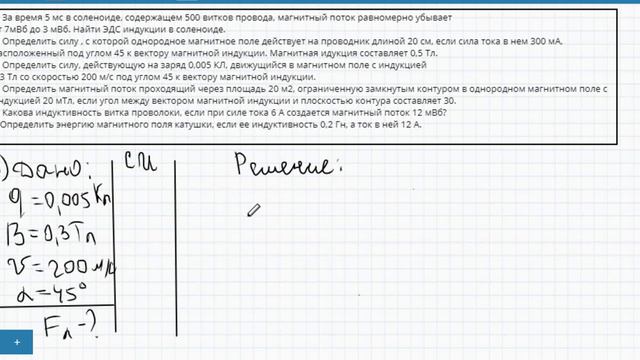 За время 5 мс в соленоиде, содержащем 500 витков провода, магнитный поток равномерно убывает
т 7мВб до 3 мВб. Найти ЭДС индукции в соленоиде.
Определить силу , с которой однородное магнитное поле действует на проводник длиной 20 см, если сила тока в нем 300 мА,
асположенный под углом 45 к вектору магнитной индукции. Магнитная идукция составляет 0,5 Тл.
Определить силу, действующую на заряд 0,005 КЛ, движущийся в магнитном поле с индукцией
3 Тл со скоростью 200 м/с под углом 45 к вектору магнитной индукции.
Определить магнитный поток проходящий через площадь 20 м2, ограниченную замкнутым контуром в однородном магнитном поле с
ндукцией 20 мТл, если угол между вектором магнитной индукции и плоскостью контура составляет 30.
Какова индуктивность витка проволоки, если при силе тока 6 А создается магнитный поток 12 мВб?
Определить энергию магнитного поля катушки, если ее индуктивность 0,2 Гн, а ток в ней 12 А.
) Дано: СИ Решение:
q = 0,005 Кл
B = 0,3 Тл
v = 200 м/с
α = 45°
Fл - ?
+